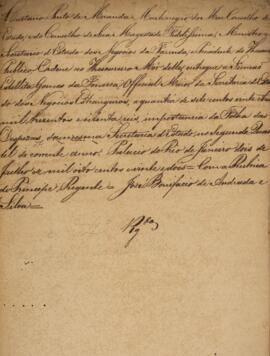 Caetano Pinto de Miranda Montenegro do Meu Conselho de
Estado, do Conselho de Sua Magestade Fidelissima, Ministro e
Secretario d'Estado dos Negocios da Fazenda, e Presidente do Thesouro
Publico. O do mesmo Thesouro Mor delle entregue a Simeão
Estellita Gomes da Fonseca, Official Maior da Secretaria d'Esta-
do dos Negocios Estrangeiros, a quantia de sete centos e
mil trezentos e seis, importancia da Folha das
Despezas da mesma Secretaria d'Estado no Segundo Quar-
tel do corrente anno. Palacio do Rio de Janeiro dois de
Julho de mil oito centos vinte e dois = Com a Rubrica
do Principe Regente = José Bonifacio de Andrada e
Silva =